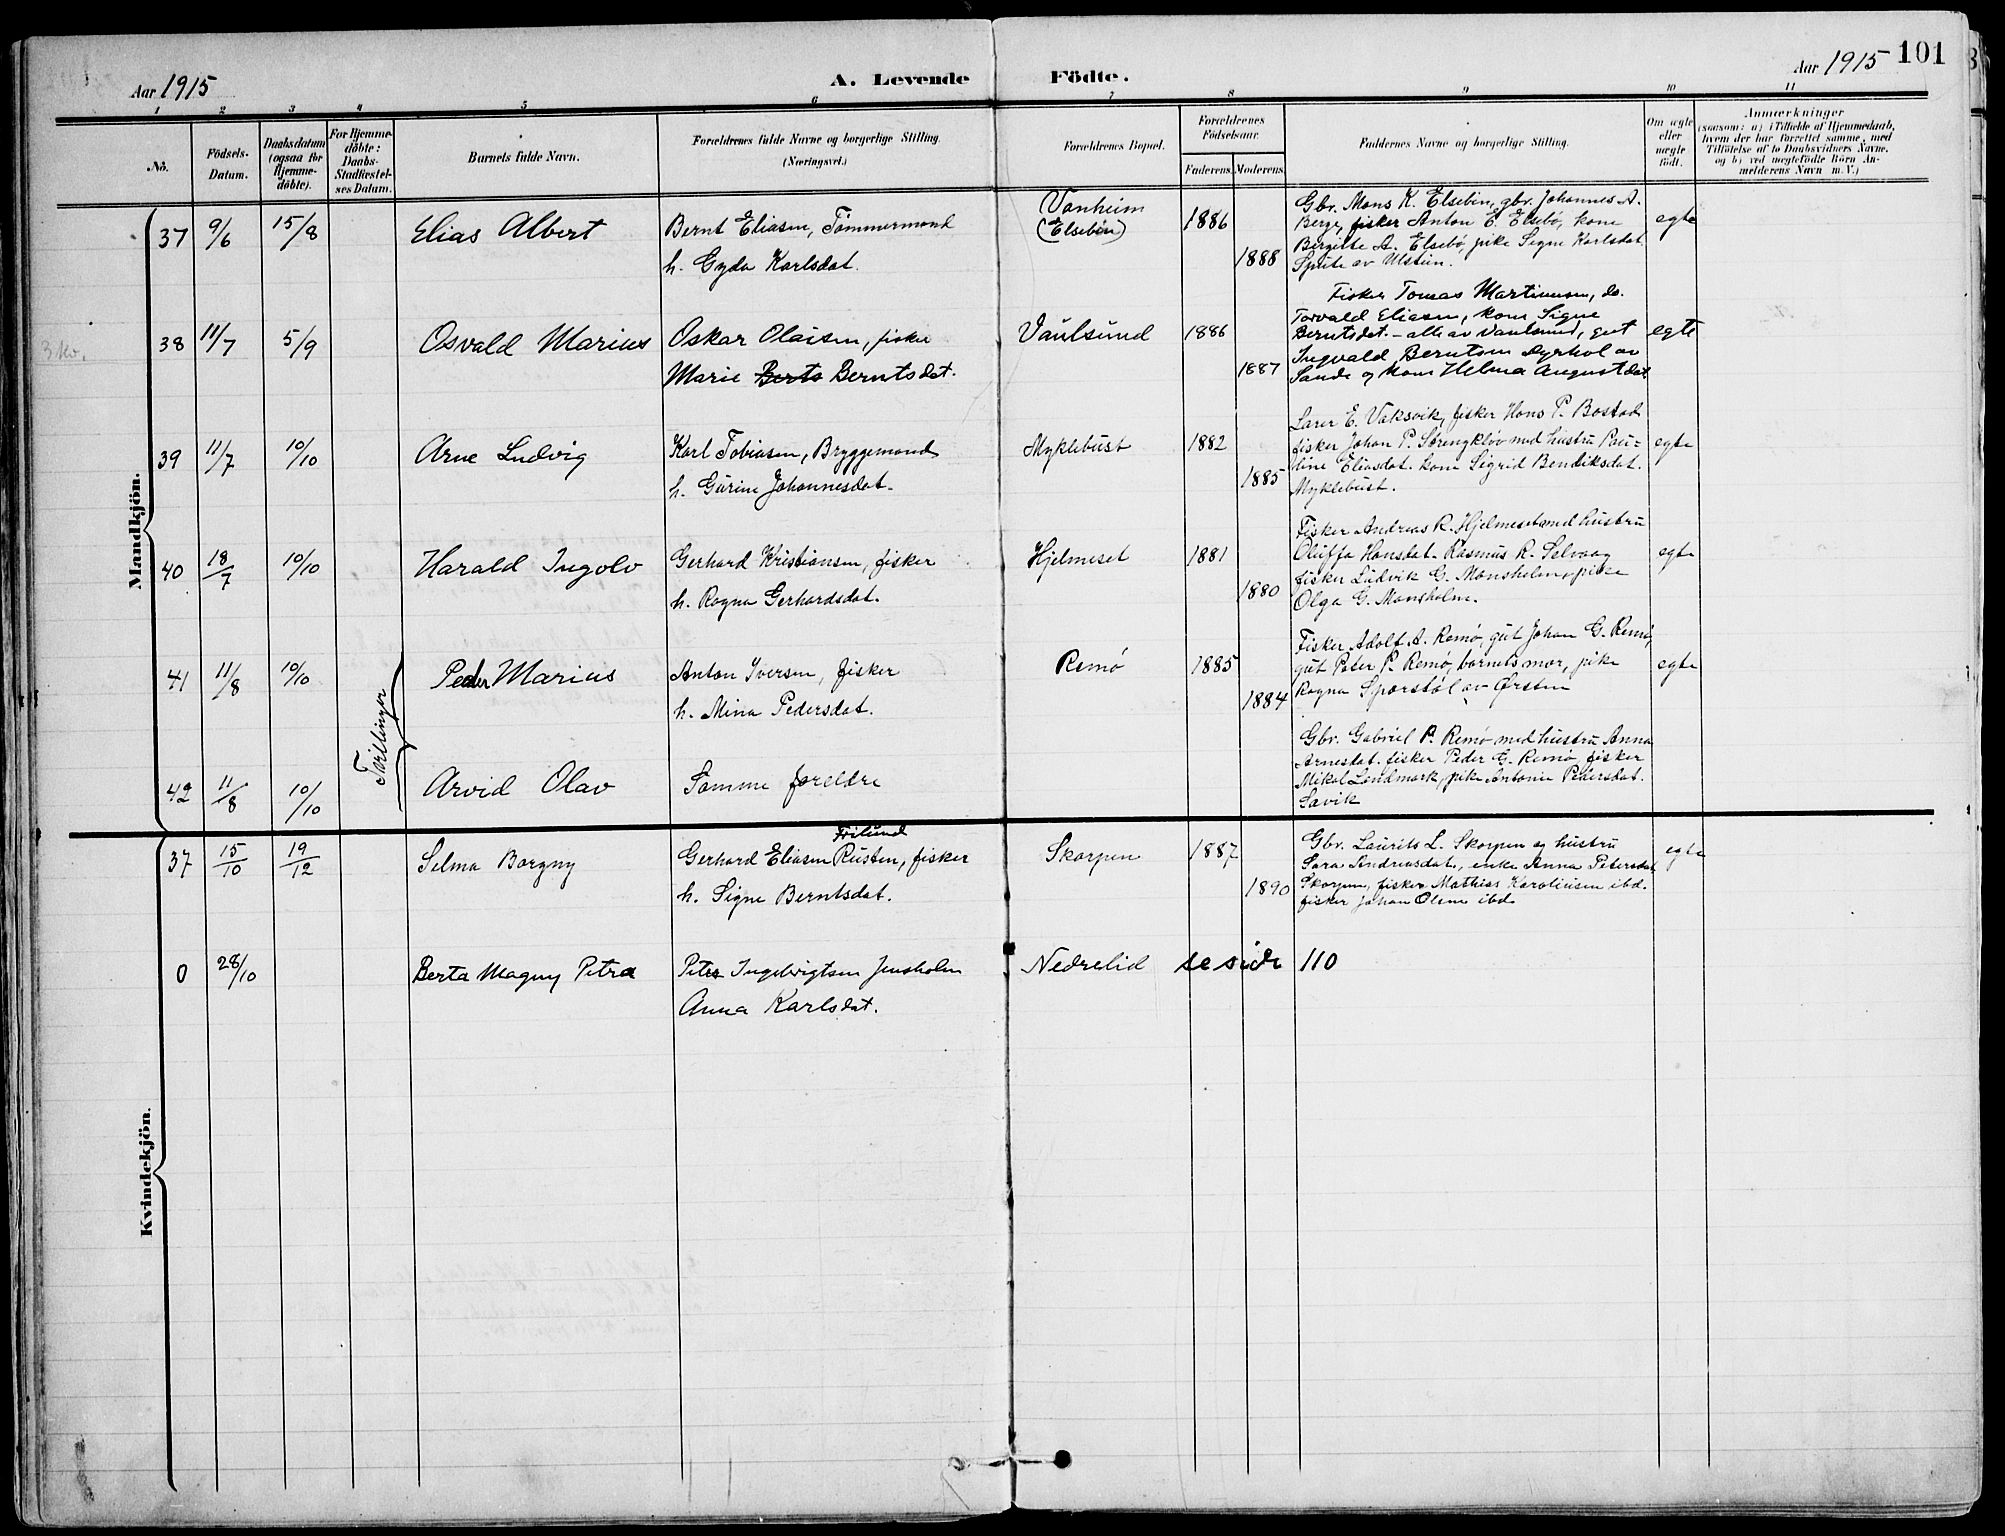 Aar 1915
A. Levende Födte.
Aar 1915 101
1 2 3 4 5 6 7 8 9 10 11
No.
Födsels-
Datum.
Daabsdatum
(ogsaa for
Hjemme-
döbte).
For Hjemme-
döbte:
Daabs-
Stadfæstel-
ses Datum.
Barnets fulde Navn.
Forældrenes fulde Navne og borgerlige Stilling.
(Næringsvei.)
Forældrenes Bopæl.
Forældrenes
Födselsaar.
Faderens. Moderens.
Faddernes Navne og borgerlige Stilling.
Om ægte
eller
uægte
födt.
Anmærkninger
(saasom: a) i Tilfælde af Hjemmedaab,
hvem der har forrettet samme, med
Tilföielse af to Daabsvidners Navne,
og b) ved uægtefödte Börn An-
melderens Navn m. V.)
Mandkjön.
37 9/6 15/8 Elias Albert
Bernt Eliasen, Tømmermand
h. Gyda Karlsdat.
Vanheim
(Elsebøn)
1886
1888
Gbr. Mons K. Elsebøn, gbr. Johannes A.
Berge, fisker Anton E. Elsebø, kone
Birgitte A. Elsebø, pike Signe Karlsdat.
av Ulstein.
egte
38 11/7 5/9 Osvald Marius
Oskar Olaisen, fisker
Marie Berts Berntsdat.
Vaulsund
1886
1887
Fisker Tomas Martinusen, do.
Torvald Eliasen, kone Signe
Berntsdat. - alle av Vaulsund, gut
Ingvald Berntsen Dyrhol av
Sande og kone Helma Augustdat
egte
39 11/7 10/10 Arne Ludvig
Karl Tobiasen, Bryggemand
h. Gurine Johannesdat.
Myklebust
1882
1885
Lærer E. Vaksvik, fisker Hans P. Bostad
fisker Johan P. Sørengkløv med hustru Pau=
line Eliasdat. kone Sigrid Bendiksdat.
Myklebust.
egte
40 18/7 10/10 Harald Ingolv
Gerhard Kristiansen, fisker
h. Ragna Gerhardsdat.
Hjelmeset
1881
1880
Fisker Andreas R. Hjelmeset med hustru
Oluffa Hansdat. Rasmus R. Selvaag
fisker Ludvik G. Mansholm, pike
Olga G. Mansholm.
egte
Tvillinger
41 11/8 10/10 Peder Marius
Anton Iversen, fisker
h. Mina Pedersdat.
Remø
1885
1884
Fisker Adolf A. Remø, gut Johan G. Remø,
gut Peter P. Remø, barnets mor, pike
Ragna Sporstøl av Ørsten
egte
42 11/8 10/10 Arvid Olav
Samme foreldre
Gbr. Gabriel P. Remø med hustru Anna
Arnesdat. fisker Peder G. Remø, fisker
Mikal Landmark, pike Antonie Pedersdat.
Savik
Kvindekjön.
37 15/10 19/12 Selma Borgny
Frilund
Gerhard Eliasen Rusten, fisker
h. Signe Berntsdat.
Skorpen
1887
1890
Gbr. Laurits L. Skorpen og hustru
Sara Andreasdat., enke Anna Petersdat,
Skorpen, fisker Mathias Karoliusen ibd.
fisker Johan Olsen ibd.
egte
0 28/10 Berta Magny Petra
Peter Ingebrigtsen Jensholm
Anna Karlsdat.
Nedrelid
se side 110